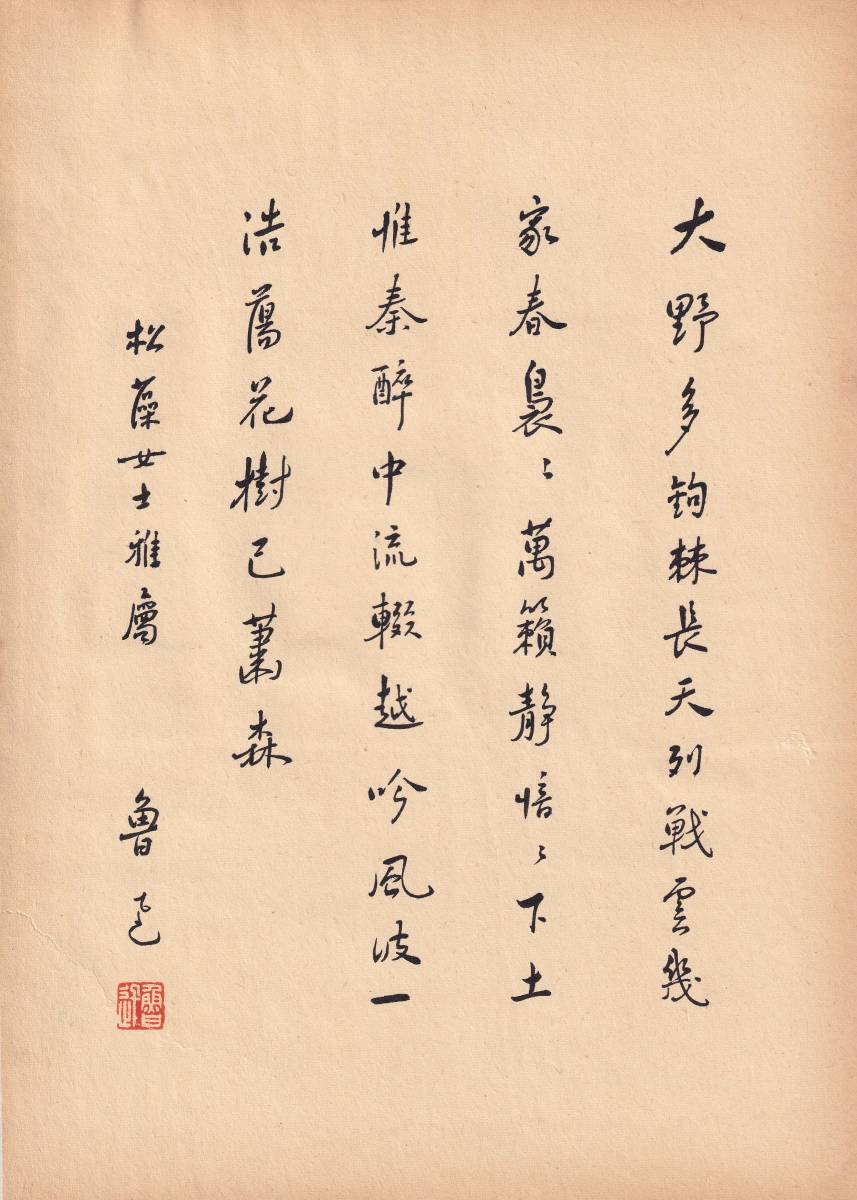 大野多鉤棘長天列戰雲幾
家春裊〻萬籟靜愔〻下土
惟秦醉中流輟越吟風波一
浩蕩花樹已蕭森
松藻女士雅屬
魯迅
魯迅